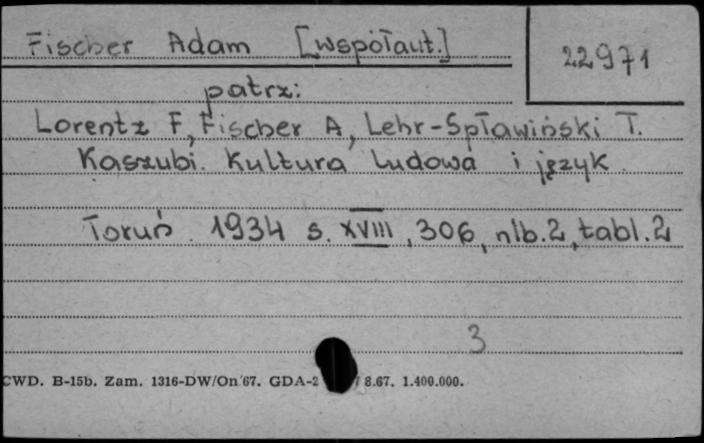 Fischer Adam [współaut.]
22971
patrz:
Lorentz F, Fischer A, Lehr-Spławiński T.
Kaszubi. Kultura ludowa i język.
Toruń. 1934 s. XVIII, 306, nlb.2, tabl.2
3
CWD. B-15b. Zam. 1316-DW/On 67. GDA-2 8.67. 1.400.000.